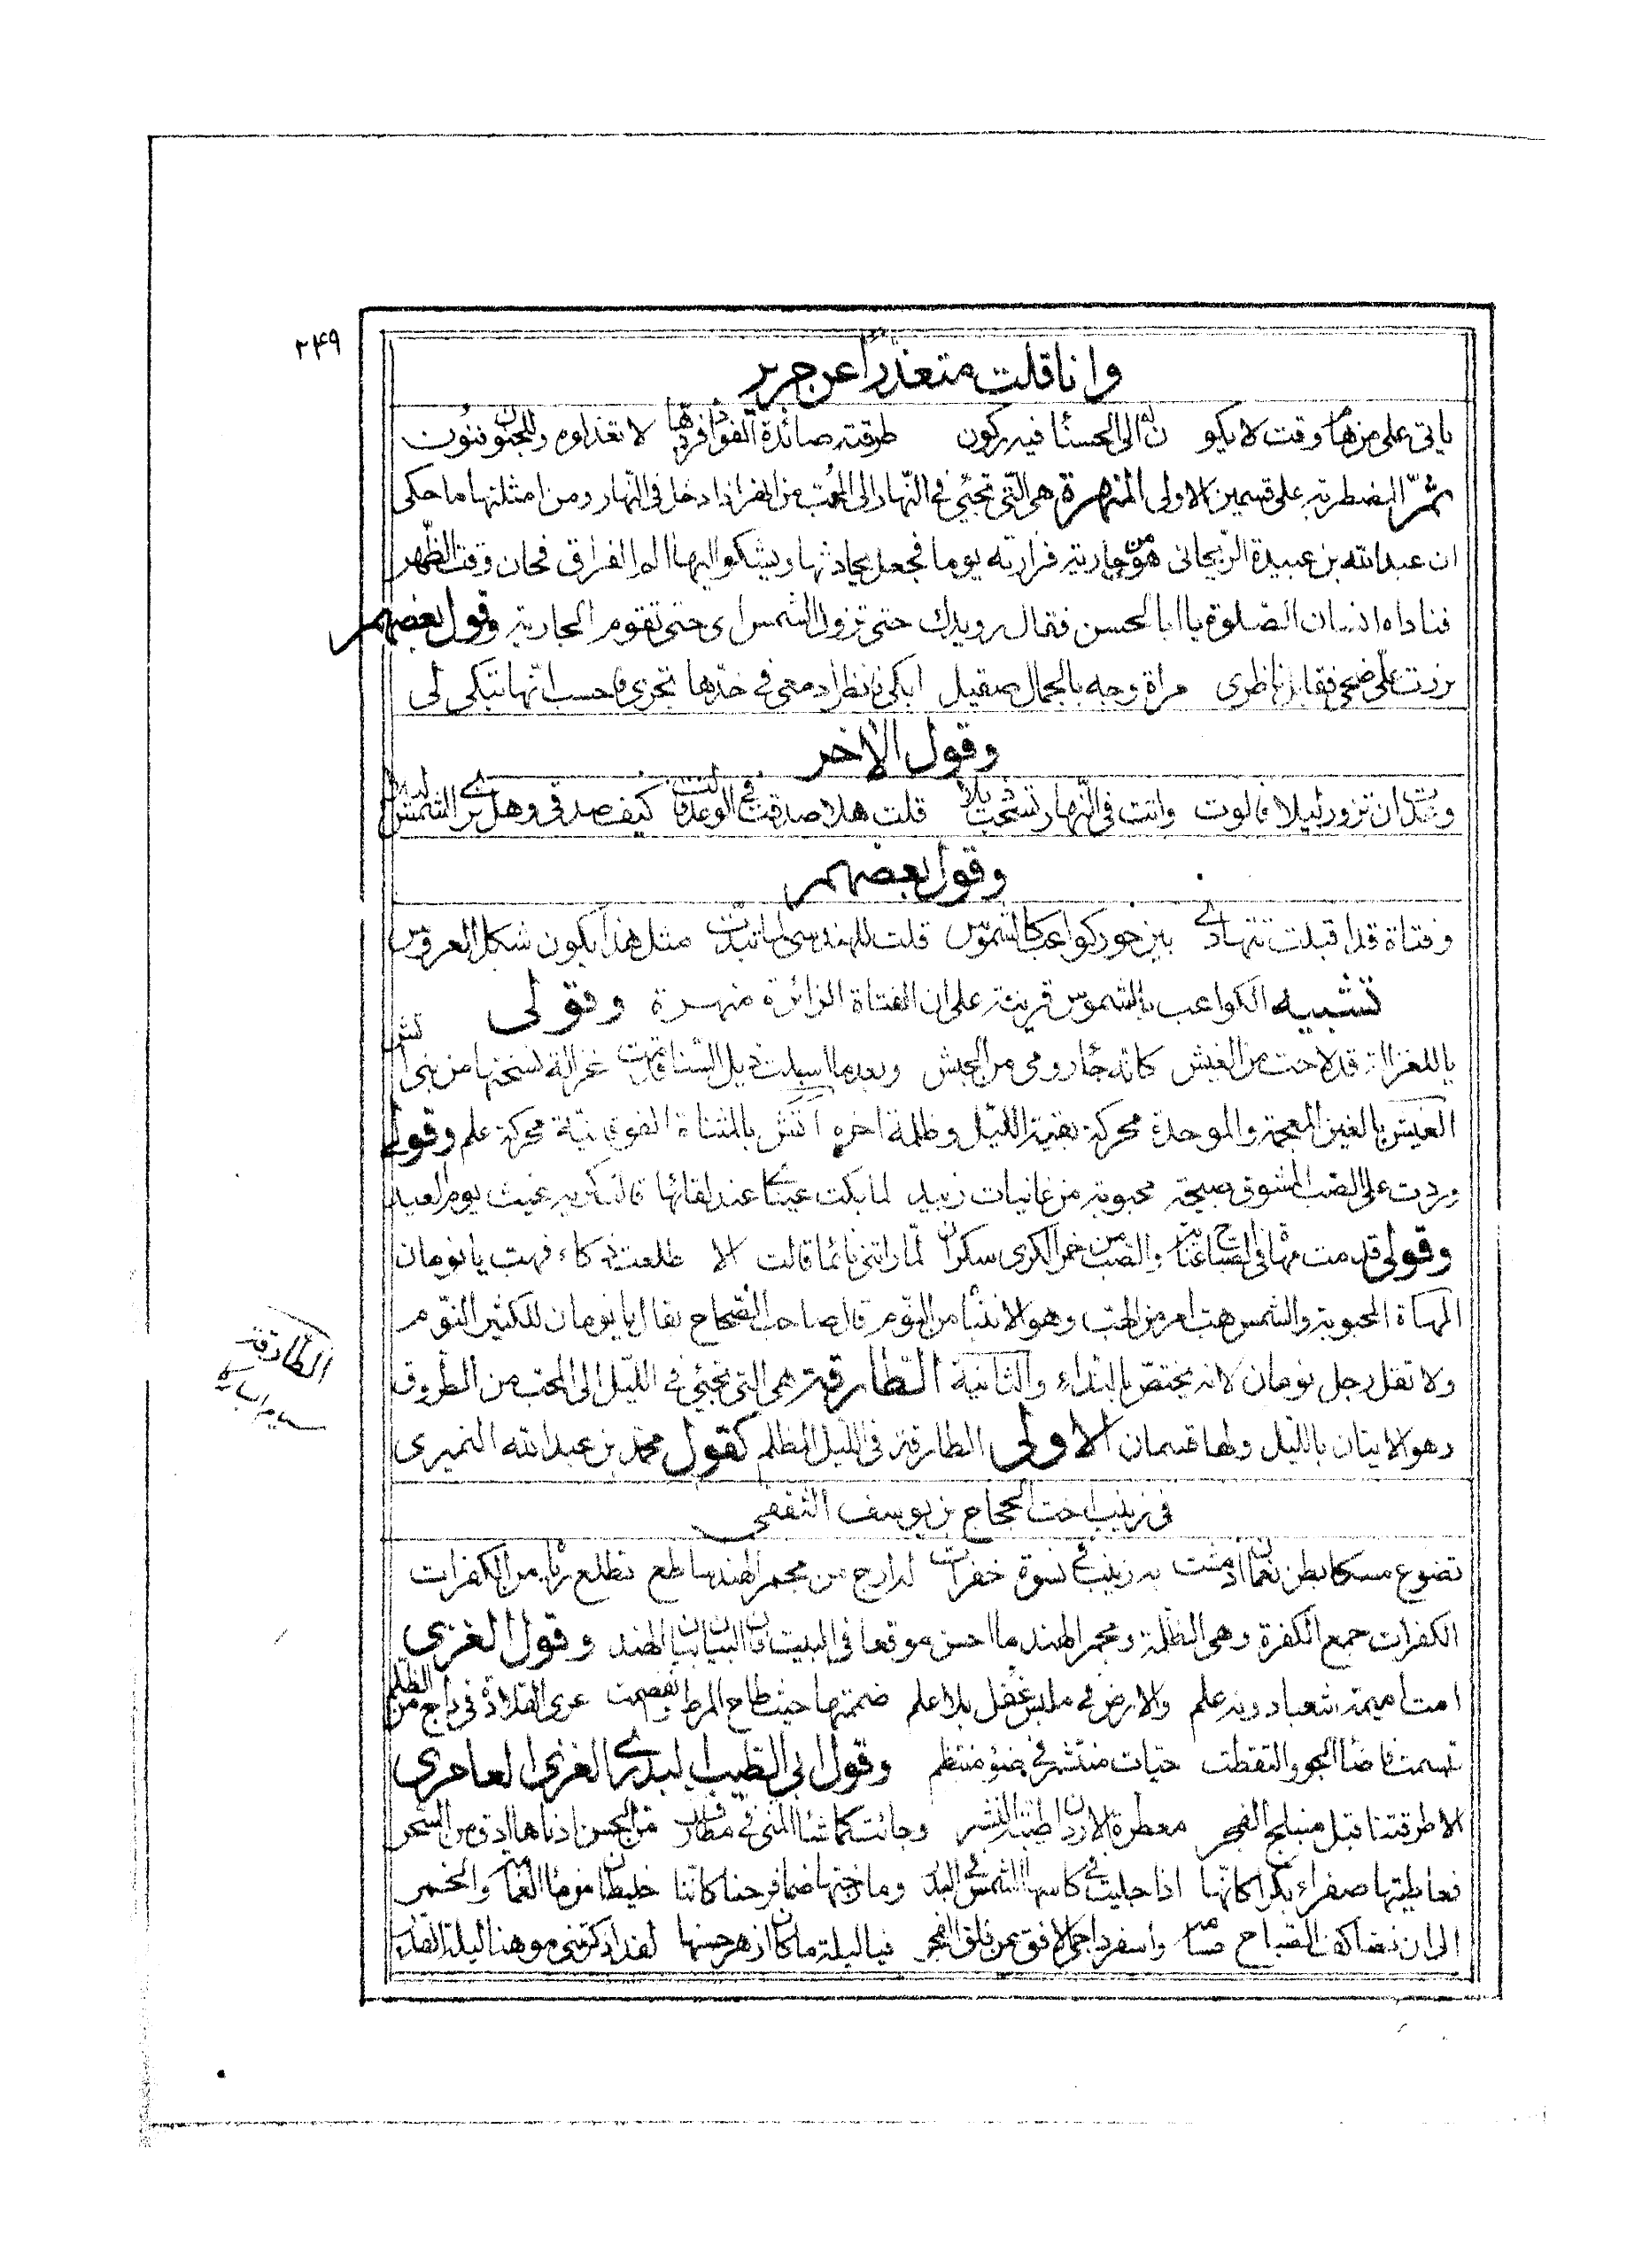 ۲۴۹
وانا قلت متعذرا عن جرير
ياتى على من هام وقت لا يكون له الى الحسنا فيه ركون طرقته صائدة الفواد فردها لا تعذلوه وللجنون فنون
ثمّ المضطربة على قسمين الاولى المنهرة هى التى تجئي فى النهار الى المحب من انهر اذا دخل فى النهار ومن امثلتها ما حكى
ان عبدالله بن عبيدة الريحانى هوى جارية فزارته يوما فجعل يحادثها ويشكو اليها الم الفراق فحان وقت الظهر
فناداه انسان الصلوة يا ابا الحسن فقال رويدك حتى تزول الشمس اى حتى تقوم الجارية وقول بعضهم
برزت علىّ ضحى فقابل ناظرى مراة وجه بالجمال صقيل ابكى فانظر ادمعى فى خدّها تجرى فاحسب انّها تبكى لى
وقول الاخر
وعدت ان تزور ليلا فالوت واتت فى النهار تسحب ذيلا قلت هلا صدقت فى الوعد قالت كيف صدقى وهل ترى الشمس ليلا
وقول بعضهم
وفتاة قد اقبلت تتهادى بين حور كواعب كالشموس قلت للهندسى لما تبدّت مثل هذا يكون شكل العروس
تشبيه الكواعب بالشموس قرينة على ان الفتاة الزائرة منهرة وقولى
يا للغزالة قد لاحت من الغبش كانه جا رومى من الحبش وبعدما اسبلت ذيل السنا قدمت غزالة نسختها من بنى اتش
الغبش بالغين المعجمة والموحدة محركة بقية الليل وظلمة اخره اتش بالمثناة الفوقانية محركة علم وقولى
وردت على الصب المشوق صبيحة محبوبة من غانيات زبيد لما بكت عيناى عند لقائها قالت به غيث يوم العيد
وقولى قدمت مهاة فى الصباح غنية والصب من خمر الكرى سكران لما راتنى نائما قالت الا طلعت ذكاء فهب يا نومان
المهاة المحبوبة والشمس هب امر من الهب وهو الانتباه من النوم قال صاحب الصحاح يقال يا نومان للكثير النوم
ولا تقل رجل نومان لانه يختص بالنداء والثانية الطارقة هى التى تجئي فى الليل الى المحب من الطروق
وهو الاتيان بالليل ولها قسمان الاولى الطارقة فى الليل المظلم كقول محمد بن عبدالله النميرى
الطارقة
فى زينب اخت الحجاج بن يوسف الثقفى
تضوع مسكا بطن نعمان اذ مشت به زينب فى نسوة خفرات له ارج من مجمر الهند ساطع تطلع رياه من الكفرات
الكفرات جمع الكفرة وهى الظلمة ومجمر الهند ما احسن موقعا فى البيت فان البيان بيان الهند وقول الغزى
امت اميمة شعبا دونه علم والارض فى ملبس غفل بلا علم ضممتها حيث طاح المرط وانفصمت عرى القلادة فى داج من الظلم
تبسمت فاضا الجو والتقطت حبات منتثر فى ضوء منتظم وقول ابى الطيب البدرى الغزى العامرى
الا طرقتنا قبل منبلج الفجر معطرة الاردان طيبة النشر وجائت كما شا المنى فى مطارف من الحسن ادناها ادق من السحر
فعاطيتها صفراء بكرا كانها اذا جليت فى كاسها الشمس فى البدر ومازجتها ضما فرحنا كاننا خليطان من ما الغمام والخمر
الى ان نضا كف الصباح وأسفر داجى الافق عن فلق الفجر فيا ليلة ما كان ازهر حسنها لقد اذكرتنى موهنا ليلة القدر